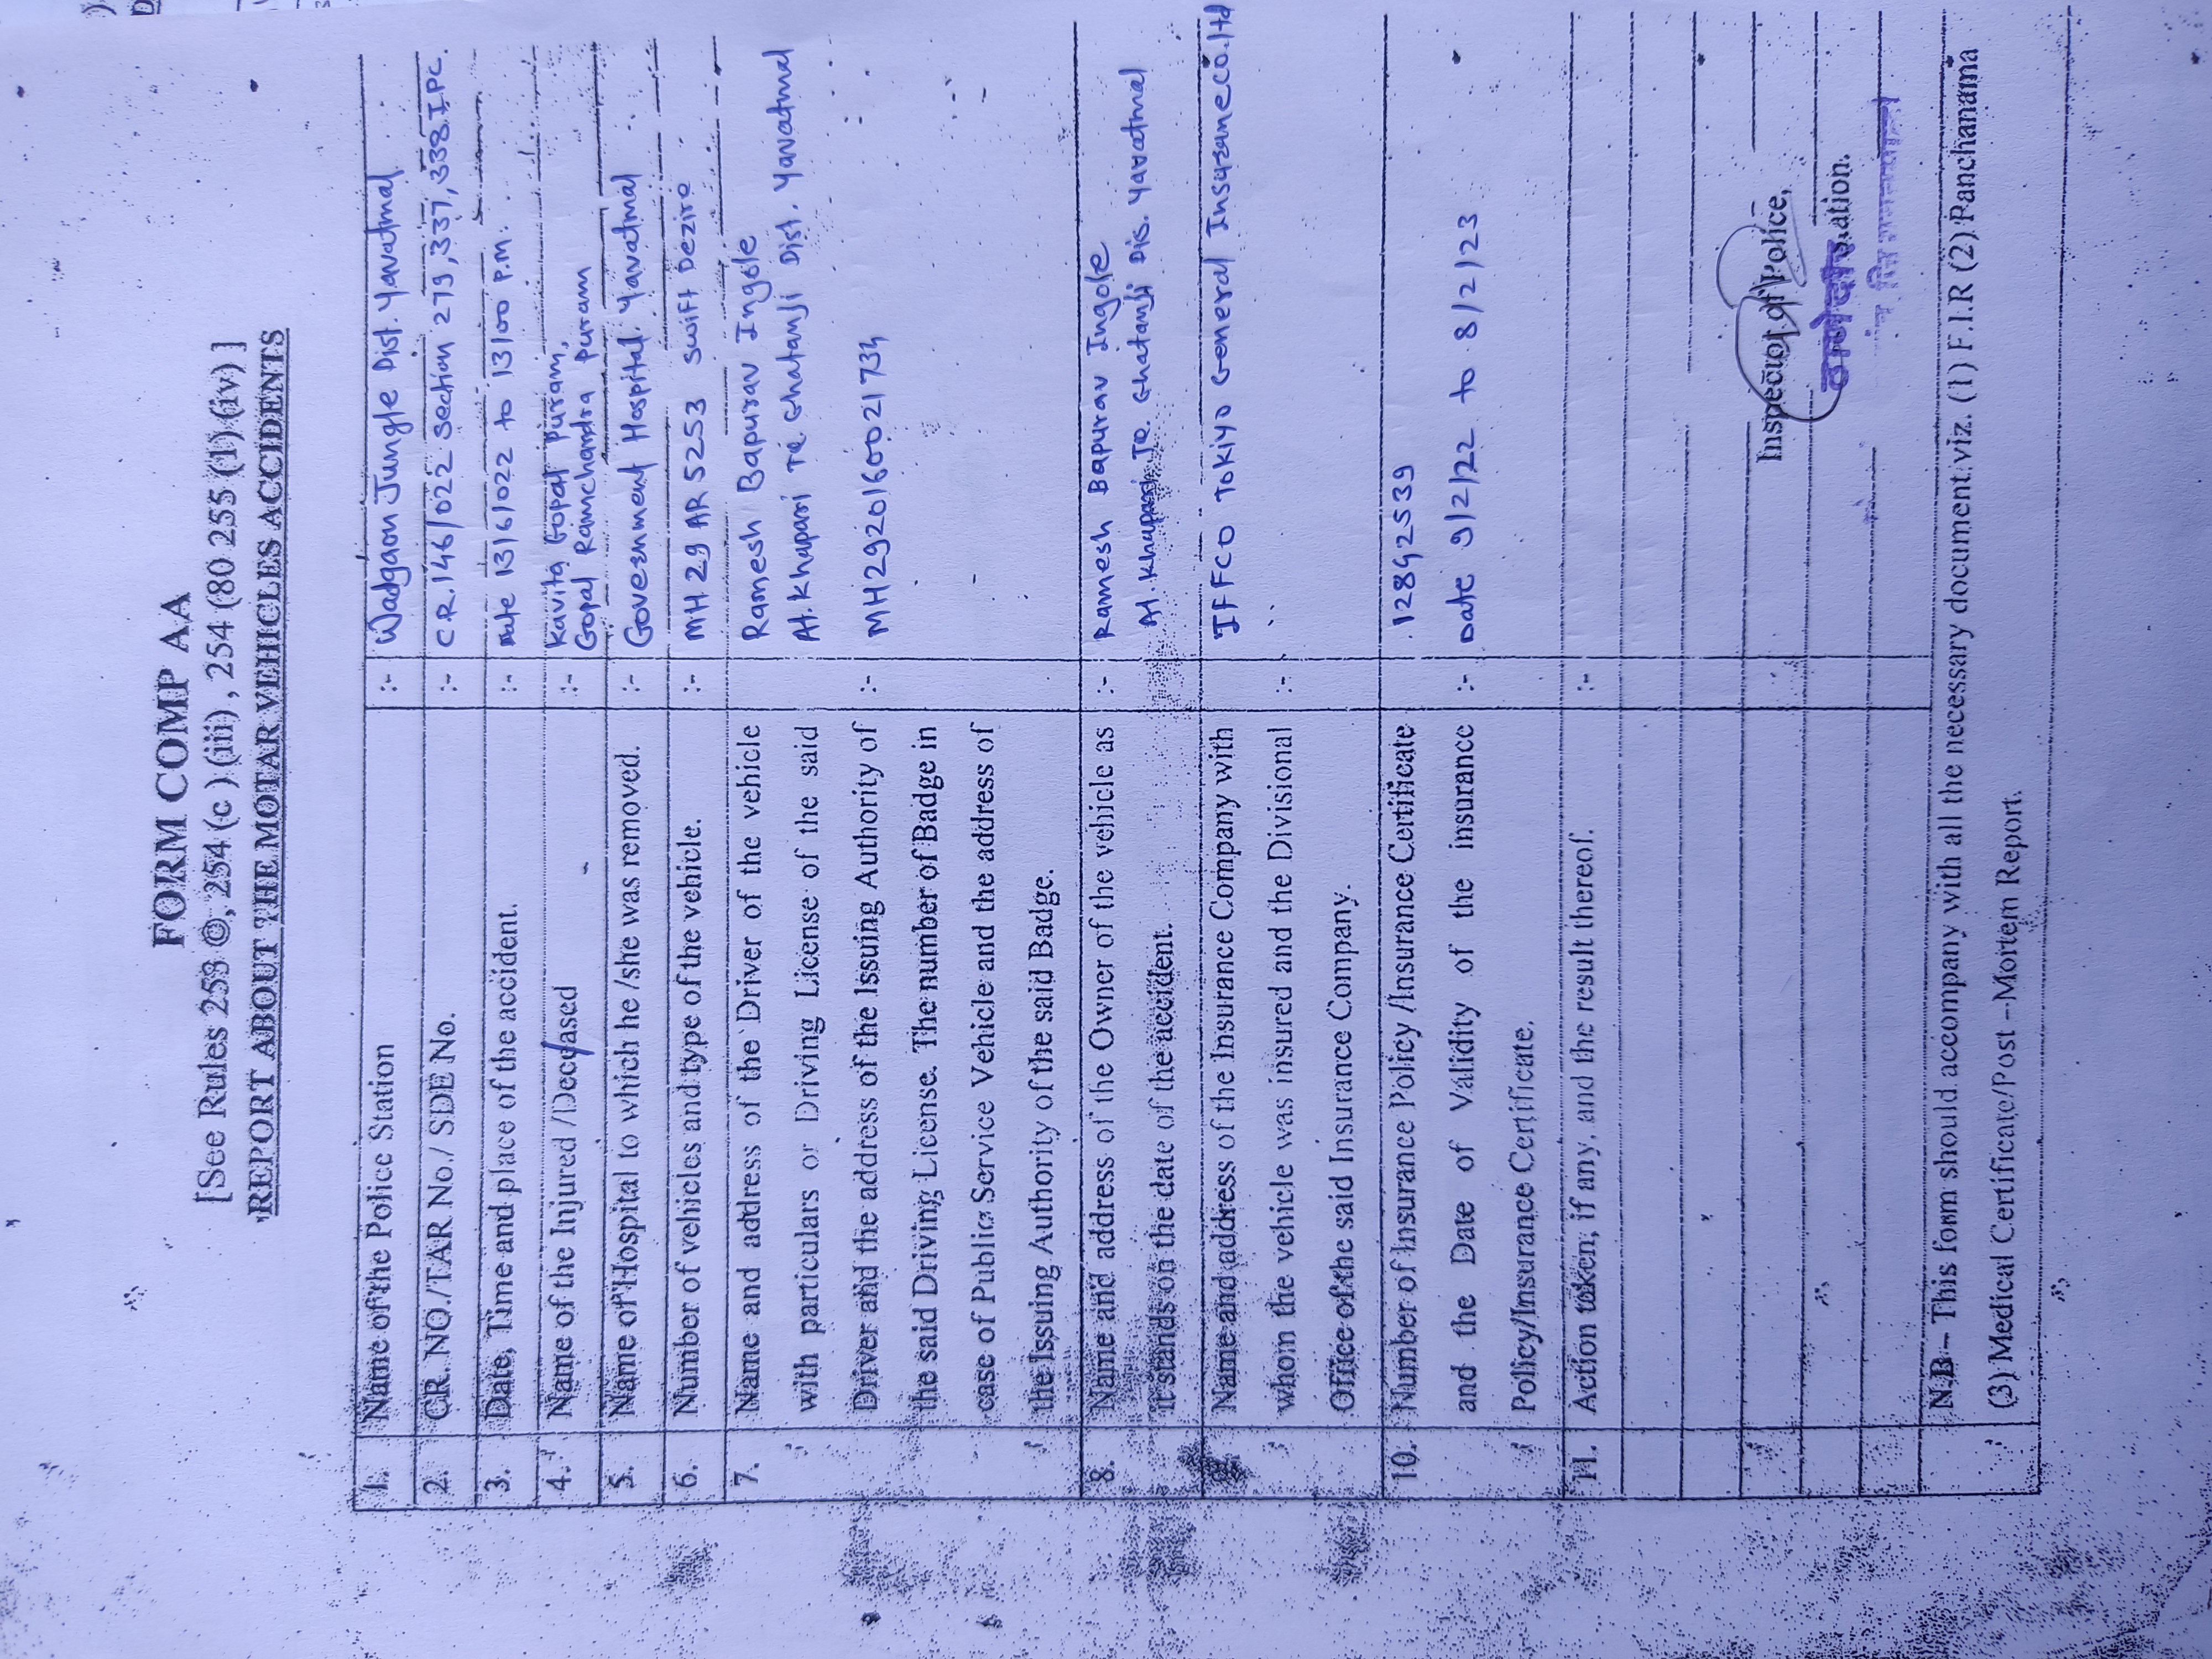 FORM COMP AA
[See Rules 253 ©, 254 (c ) (iii) , 254 (80 255 (1) (iv) ]
REPORT ABOUT THE MOTAR VEHICLES ACCIDENTS
1. Name of the Police Station :- Wadgaon Jungle Dist. Yavatmal
2. CR. NO./TAR No./ SDE No. :- C.R. 146/022 Section 279, 337, 338 I.P.C.
3. Date, Time and place of the accident. :- Date 13/6/022 to 13/00 P.M.
4. Name of the Injured /Deceased :- Kavita Gopal Puram,
Gopal Ramchandra Puram
5. Name of Hospital to which he /she was removed. :- Government Hospital Yavatmal
6. Number of vehicles and type of the vehicle. :- MH 29 AR 5253 swift Dezire
7. Name and address of the Driver of the vehicle Ramesh Bapurav Ingole
with particulars or Driving License of the said At. Khapari Te Ghatanji Dist. Yavatmal
Driver and the address of the Issuing Authority of :- MH2920160021734
the said Driving License. The number of Badge in
case of Public Service Vehicle and the address of
the Issuing Authority of the said Badge.
8. Name and address of the Owner of the vehicle as :- Ramesh Bapurav Ingole
it stands on the date of the accident. At. Khapari Te. Ghatanji Dis. Yavatmal
Name and address of the Insurance Company with IFFCO TOKIYO General Insurance co.ltd
whom the vehicle was insured and the Divisional :-
Office of the said Insurance Company.
10. Number of Insurance Policy /Insurance Certificate 12842539
and the Date of Validity of the insurance :- Date 9/2/22 to 8/2/23
Policy/Insurance Certificate.
11. Action taken; if any, and the result thereof. :-
Inspector of Police,
N.B – This form should accompany with all the necessary document viz. (1) F.I.R (2) Panchanama
(3) Medical Certificate/Post –Mortem Report.